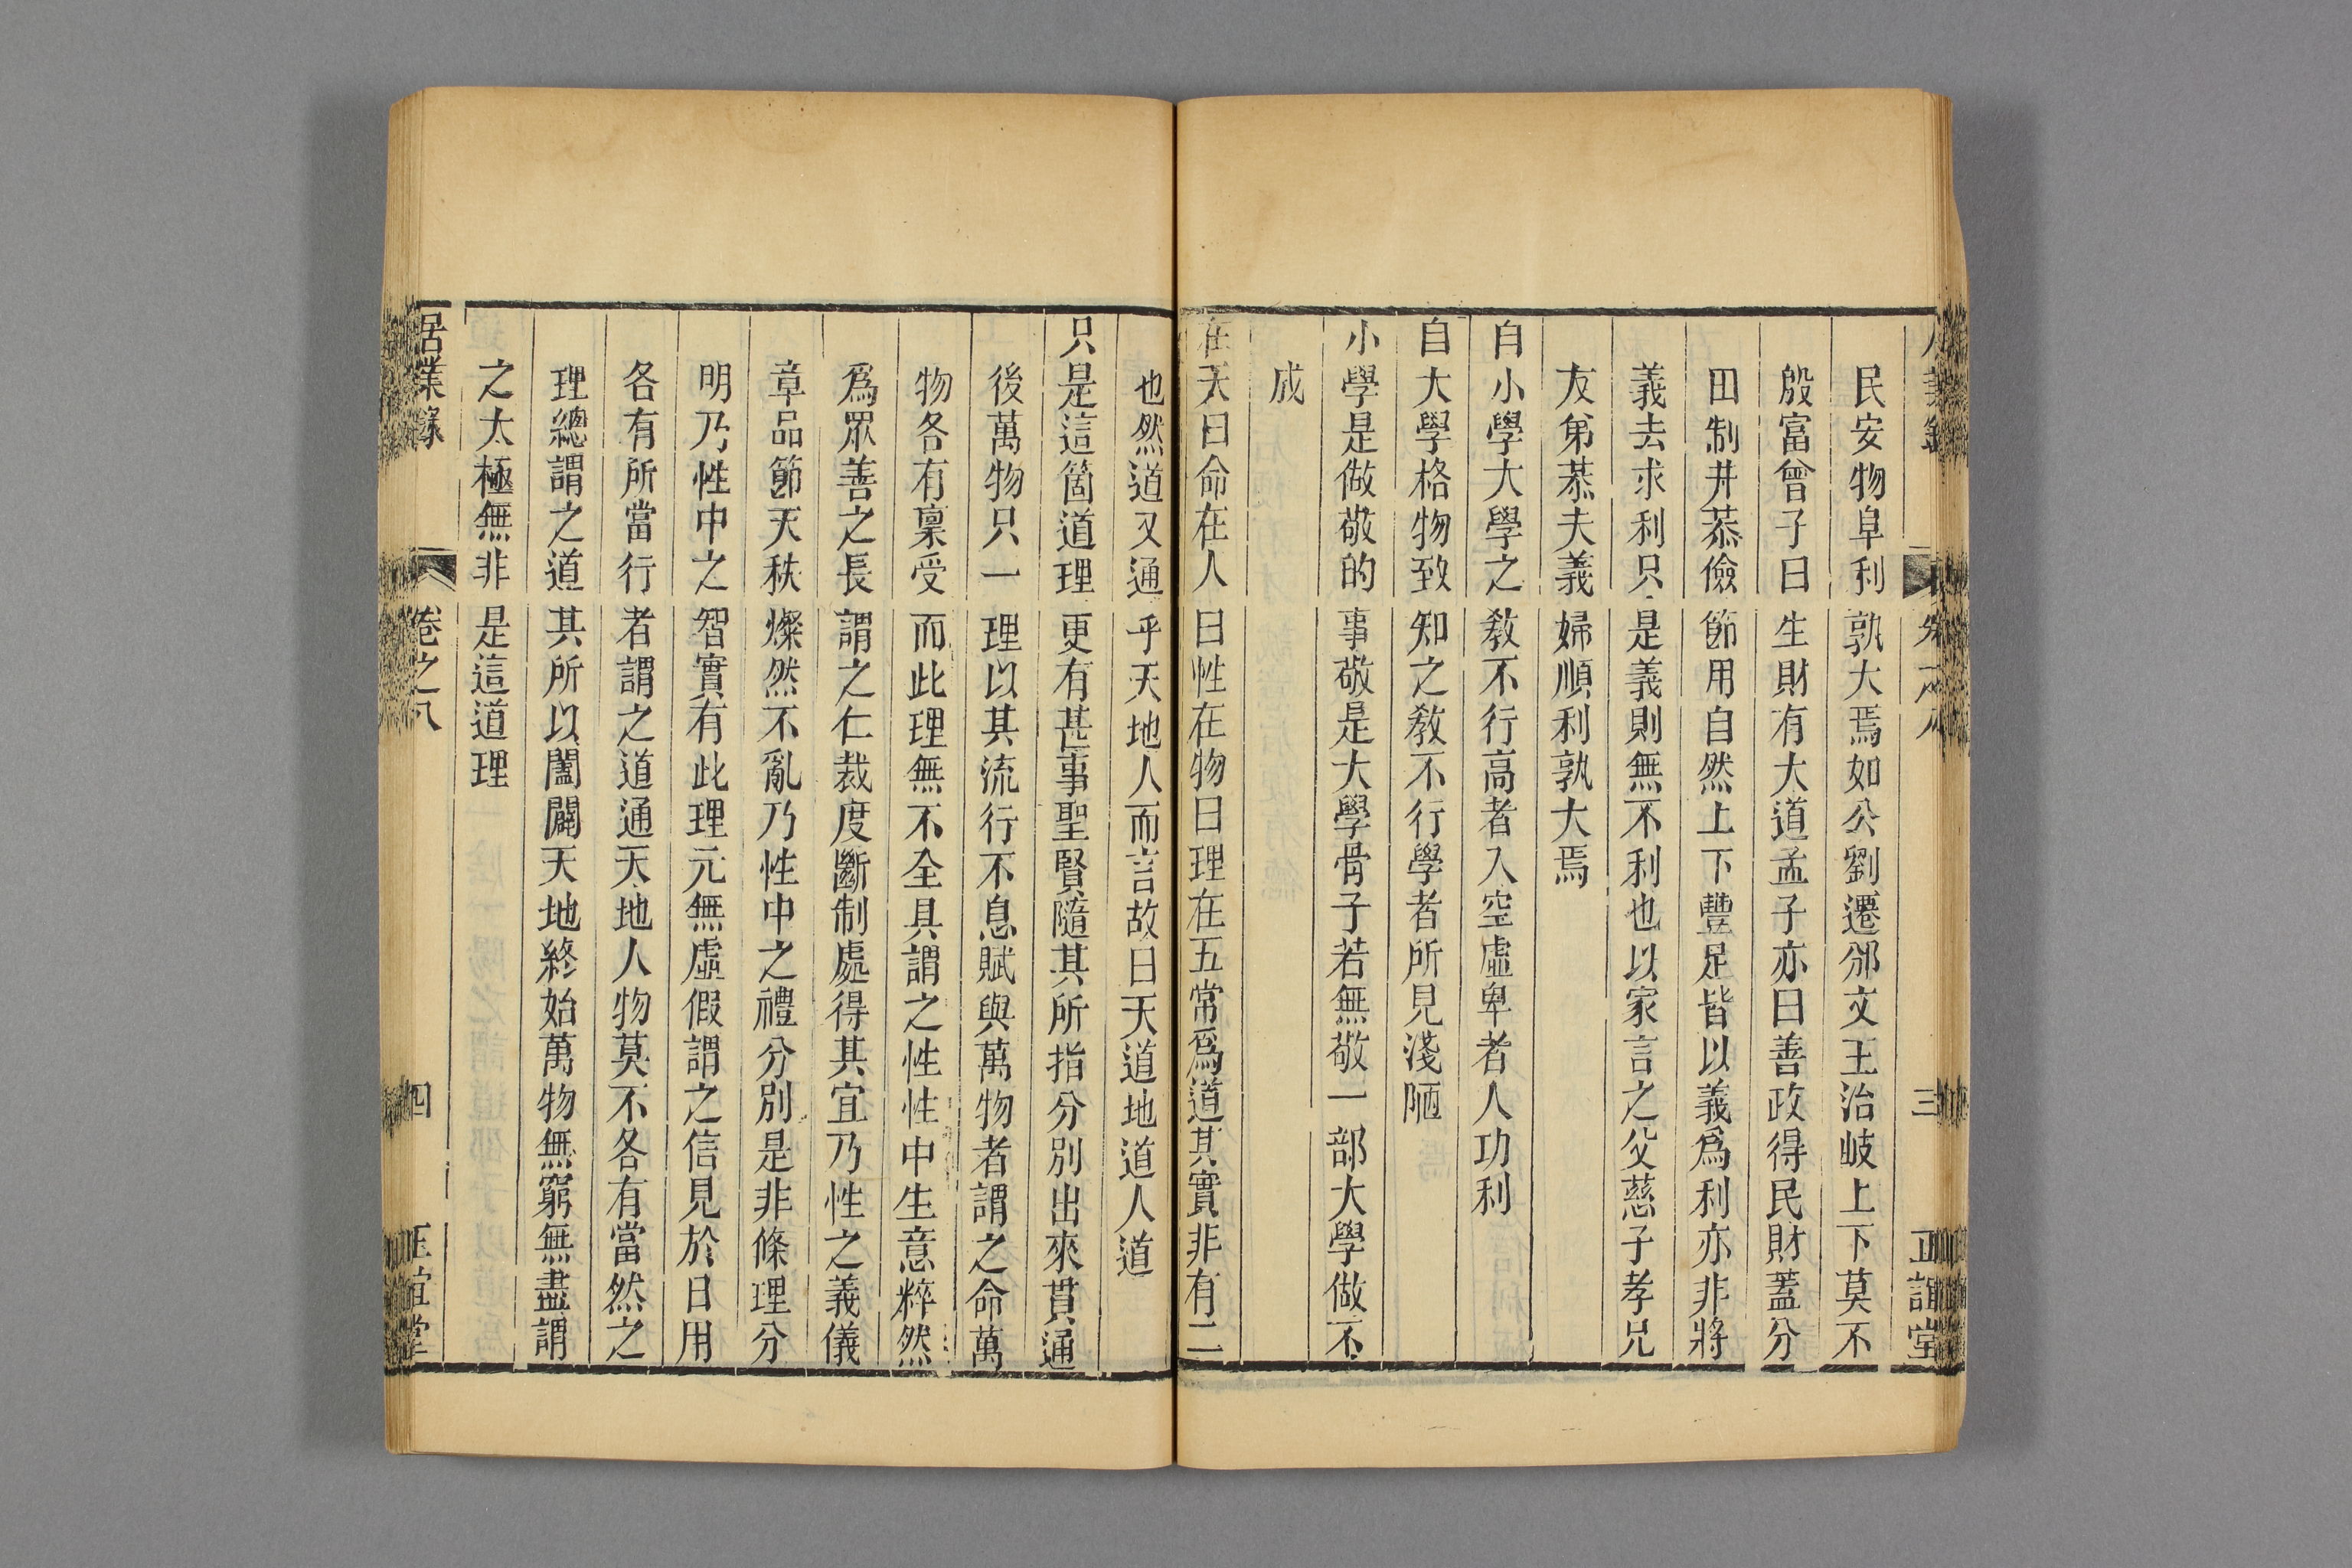 居業錄 卷之八 三 正誼堂
民安物阜利孰大焉如公劉遷邠文王治岐上下莫不
殷富曾子曰生財有大道孟子亦曰善政得民財蓋分
田制井恭儉節用自然上下豐足皆以義爲利亦非將
義去求利只是義則無不利也以家言之父慈子孝兄
友弟恭夫義婦順利孰大焉
自小學大學之教不行高者入空虛卑者人功利
自大學格物致知之教不行學者所見淺陋
小學是做敬的事敬是大學骨子若無敬一部大學做不
成
在天曰命在人曰性在物曰理在五常爲道其實非有二
也然道又通乎天地人而言故曰天道地道人道
只是這箇道理更有甚事聖賢隨其所指分別出來貫通
後萬物只一理以其流行不息賦與萬物者謂之命萬
物各有稟受而此理無不全具謂之性性中生意粹然
爲眾善之長謂之仁裁度斷制處得其宜乃性之義儀
章品節天秩燦然不亂乃性中之禮分別是非條理分
明乃性中之智實有此理元無虛假謂之信見於日用
各有所當行者謂之道通天地人物莫不各有當然之
理總謂之道其所以闔闢天地終始萬物無窮無盡謂
之太極無非是這道理
居業錄 卷之八 四 正誼堂